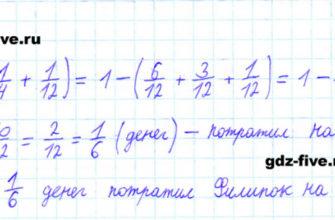 ive.ru
1/4 + 1/12) = 1 - (6/12 + 3/12 + 1/12) = 1 -
= 2/12 = 1/6 (денег) - потратил на
gdz-five.ru
1/6 денег потратил Филипок на